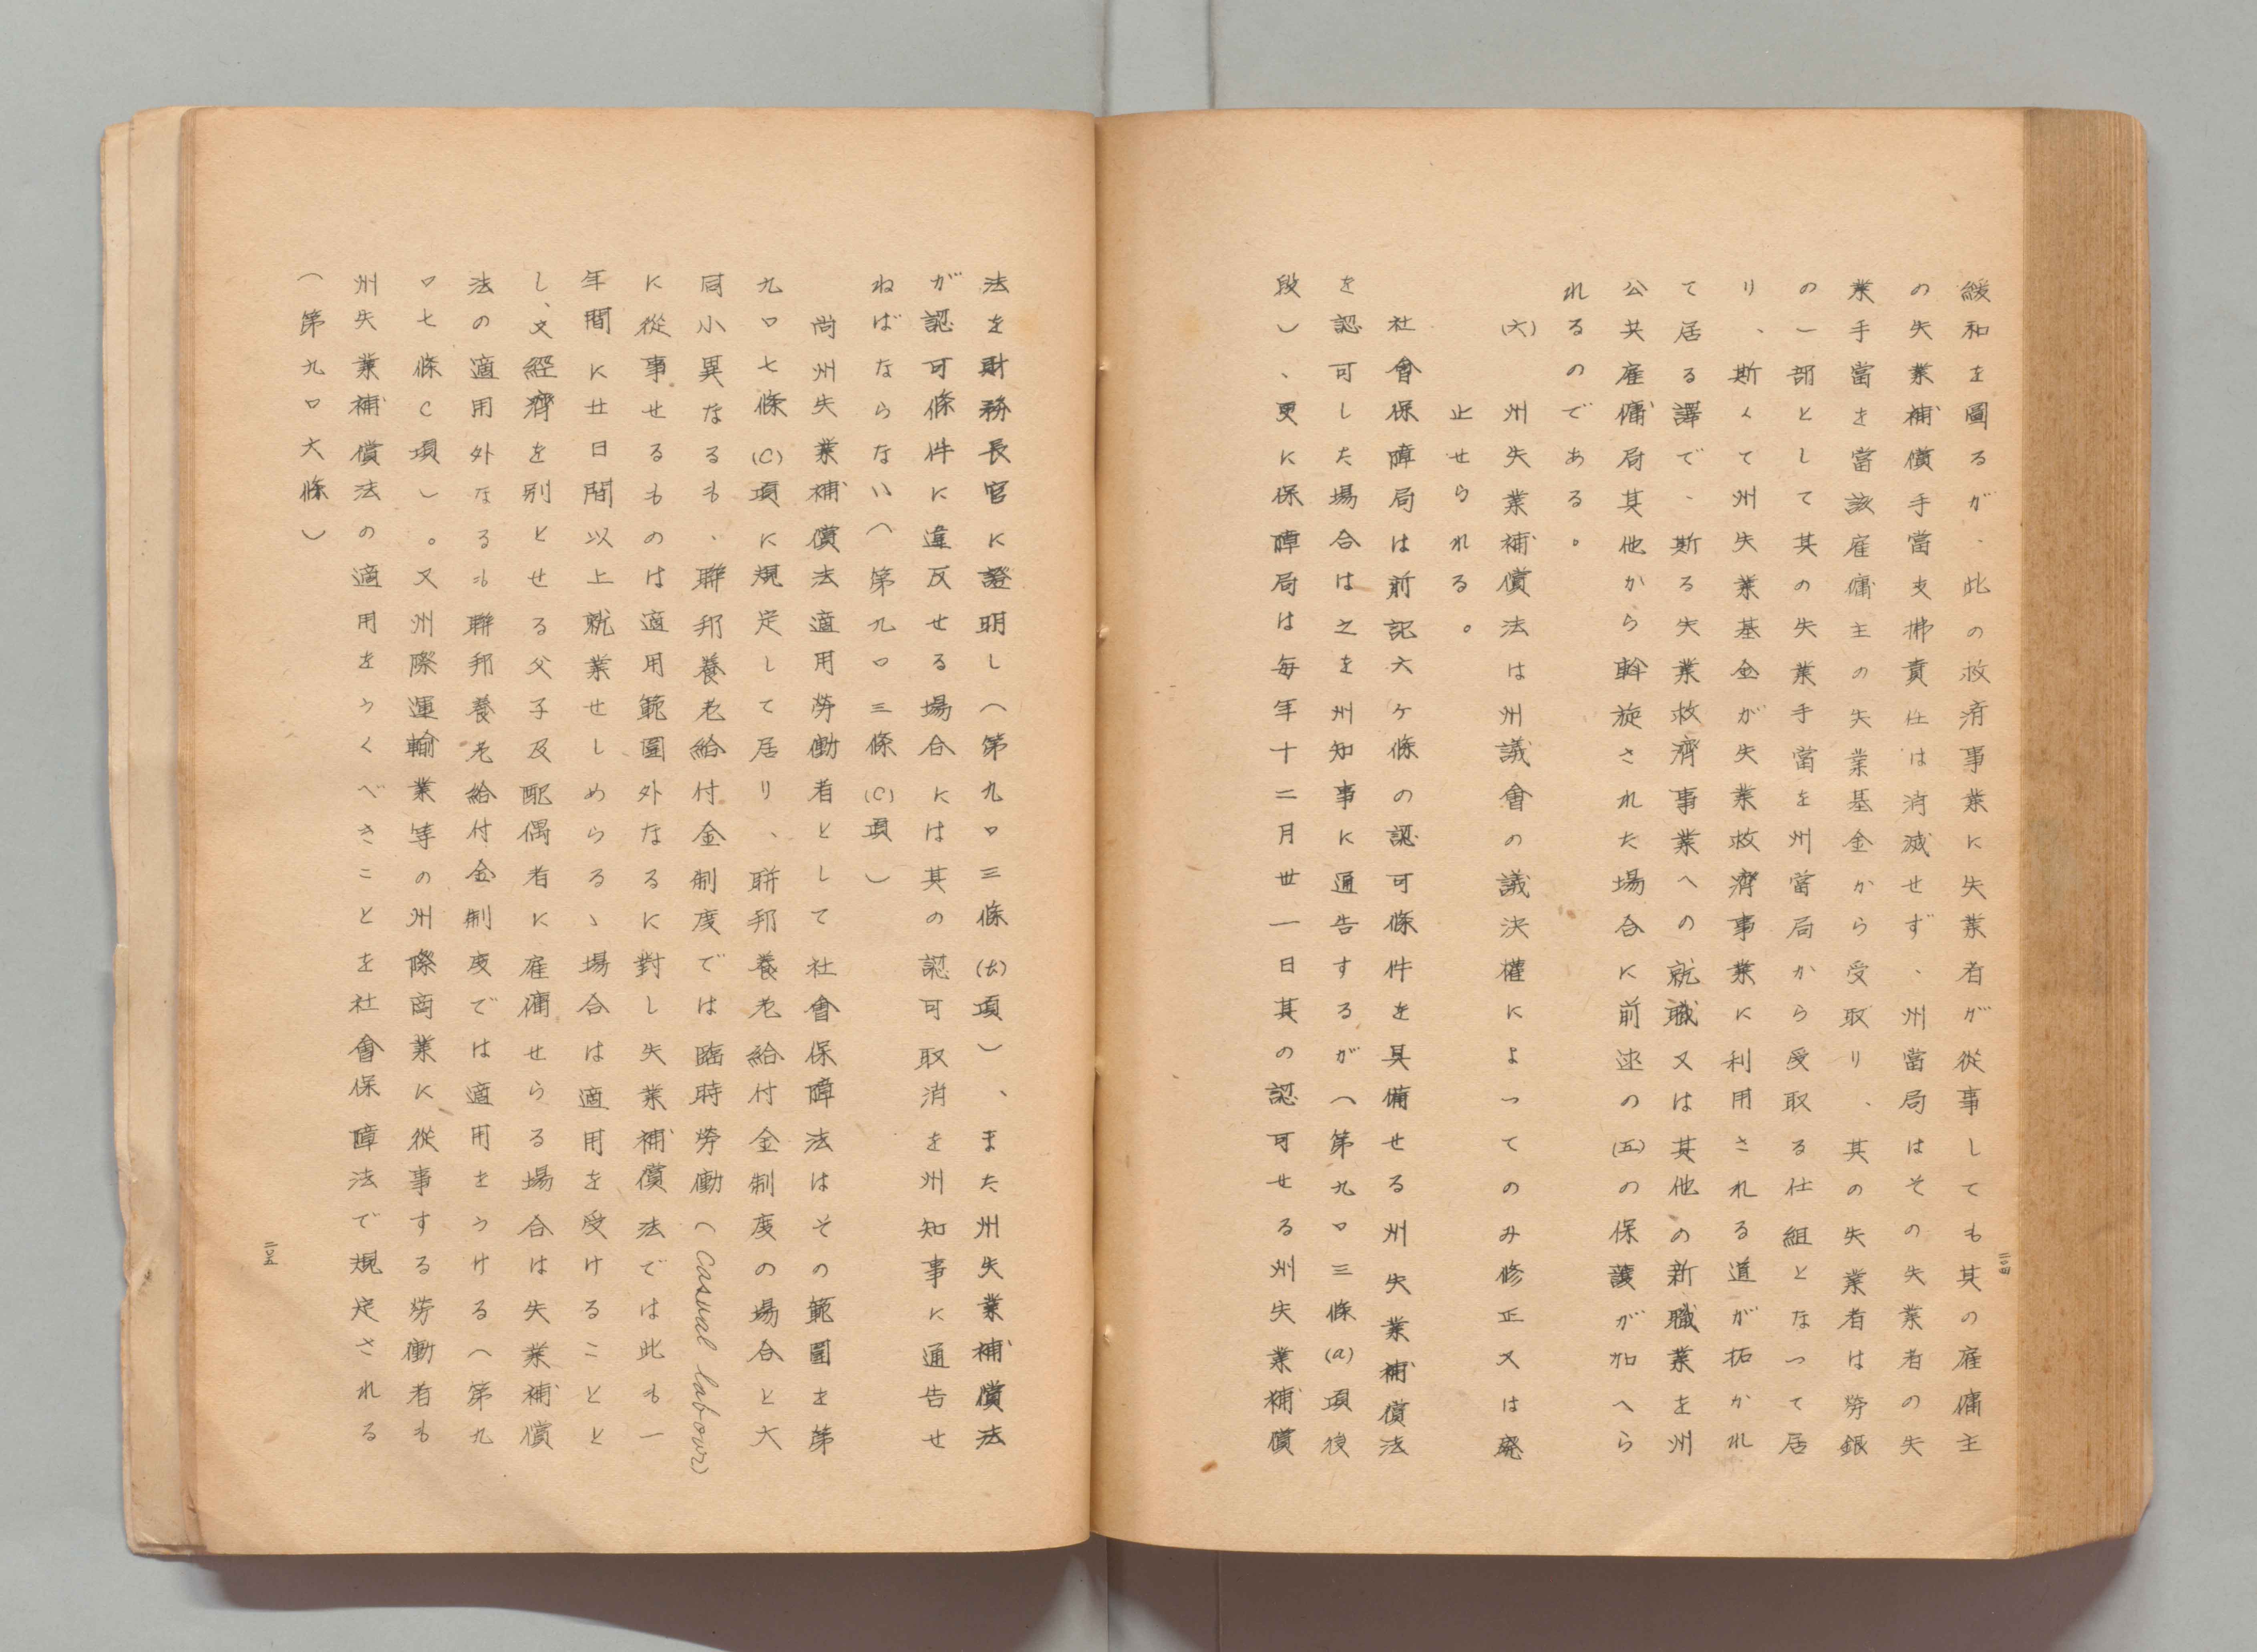 緩和を圖るが、此の救済事業に失業者が從事しても其の雇傭主
の失業補償手當支拂責任は消滅せず、州當局はその失業者の失
業手當を當該雇傭主の失業基金から受取り、其の失業者は勞銀
の一部として其の失業手當を州當局から受取る仕組となつて居
り、斯くて州失業基金が失業救濟事業に利用される道が拓かれ
て居る譯で、斯る失業救濟事業への就職又は其他の新職業を州
公共雇傭局其他から斡旋された場合に前述の(五)の保護が加へら
れるのである。
(六)　州失業補償法は州議會の議決權によつてのみ修正又は廃
止せられる。
社會保障局は前記六ヶ條の認可條件を具備せる州失業補償法
を認可した場合は之を州知事に通告するが（第九〇三條(a)項後
段）、更に保障局は毎年十二月丗一日其の認可せる州失業補償
二〇四
法を財務長官に證明し（第九〇三條(b)項）、また州失業補償法
が認可條件に違反せる場合には其の認可取消を州知事に通告せ
ねばならない（第九〇三條(C)項）
尚州失業補償法適用勞働者として社會保障法はその範圍を第
九〇七條(C)項に規定して居り、聯邦養老給付金制度の場合と大
同小異なるも、聯邦養老給付金制度では臨時勞働（Casual labour）
に從事せるものは適用範圍外なるに對し失業補償法では此も一
年間に廿日間以上就業せしめらるゝ場合は適用を受けることと
し、又經濟を別とせる父子及配偶者に雇傭せらる場合は失業補償
法の適用外なるも聯邦養老給付金制度では適用をうける（第九
〇七條C項）。又州際運輸業等の州際商業に從事する勞働者も
州失業補償法の適用をうくべきことを社會保障法で規定される
（第九〇六條）
二〇五